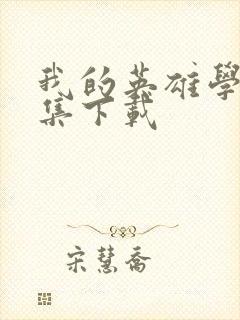 我的英雄學
集下載
宋慧喬